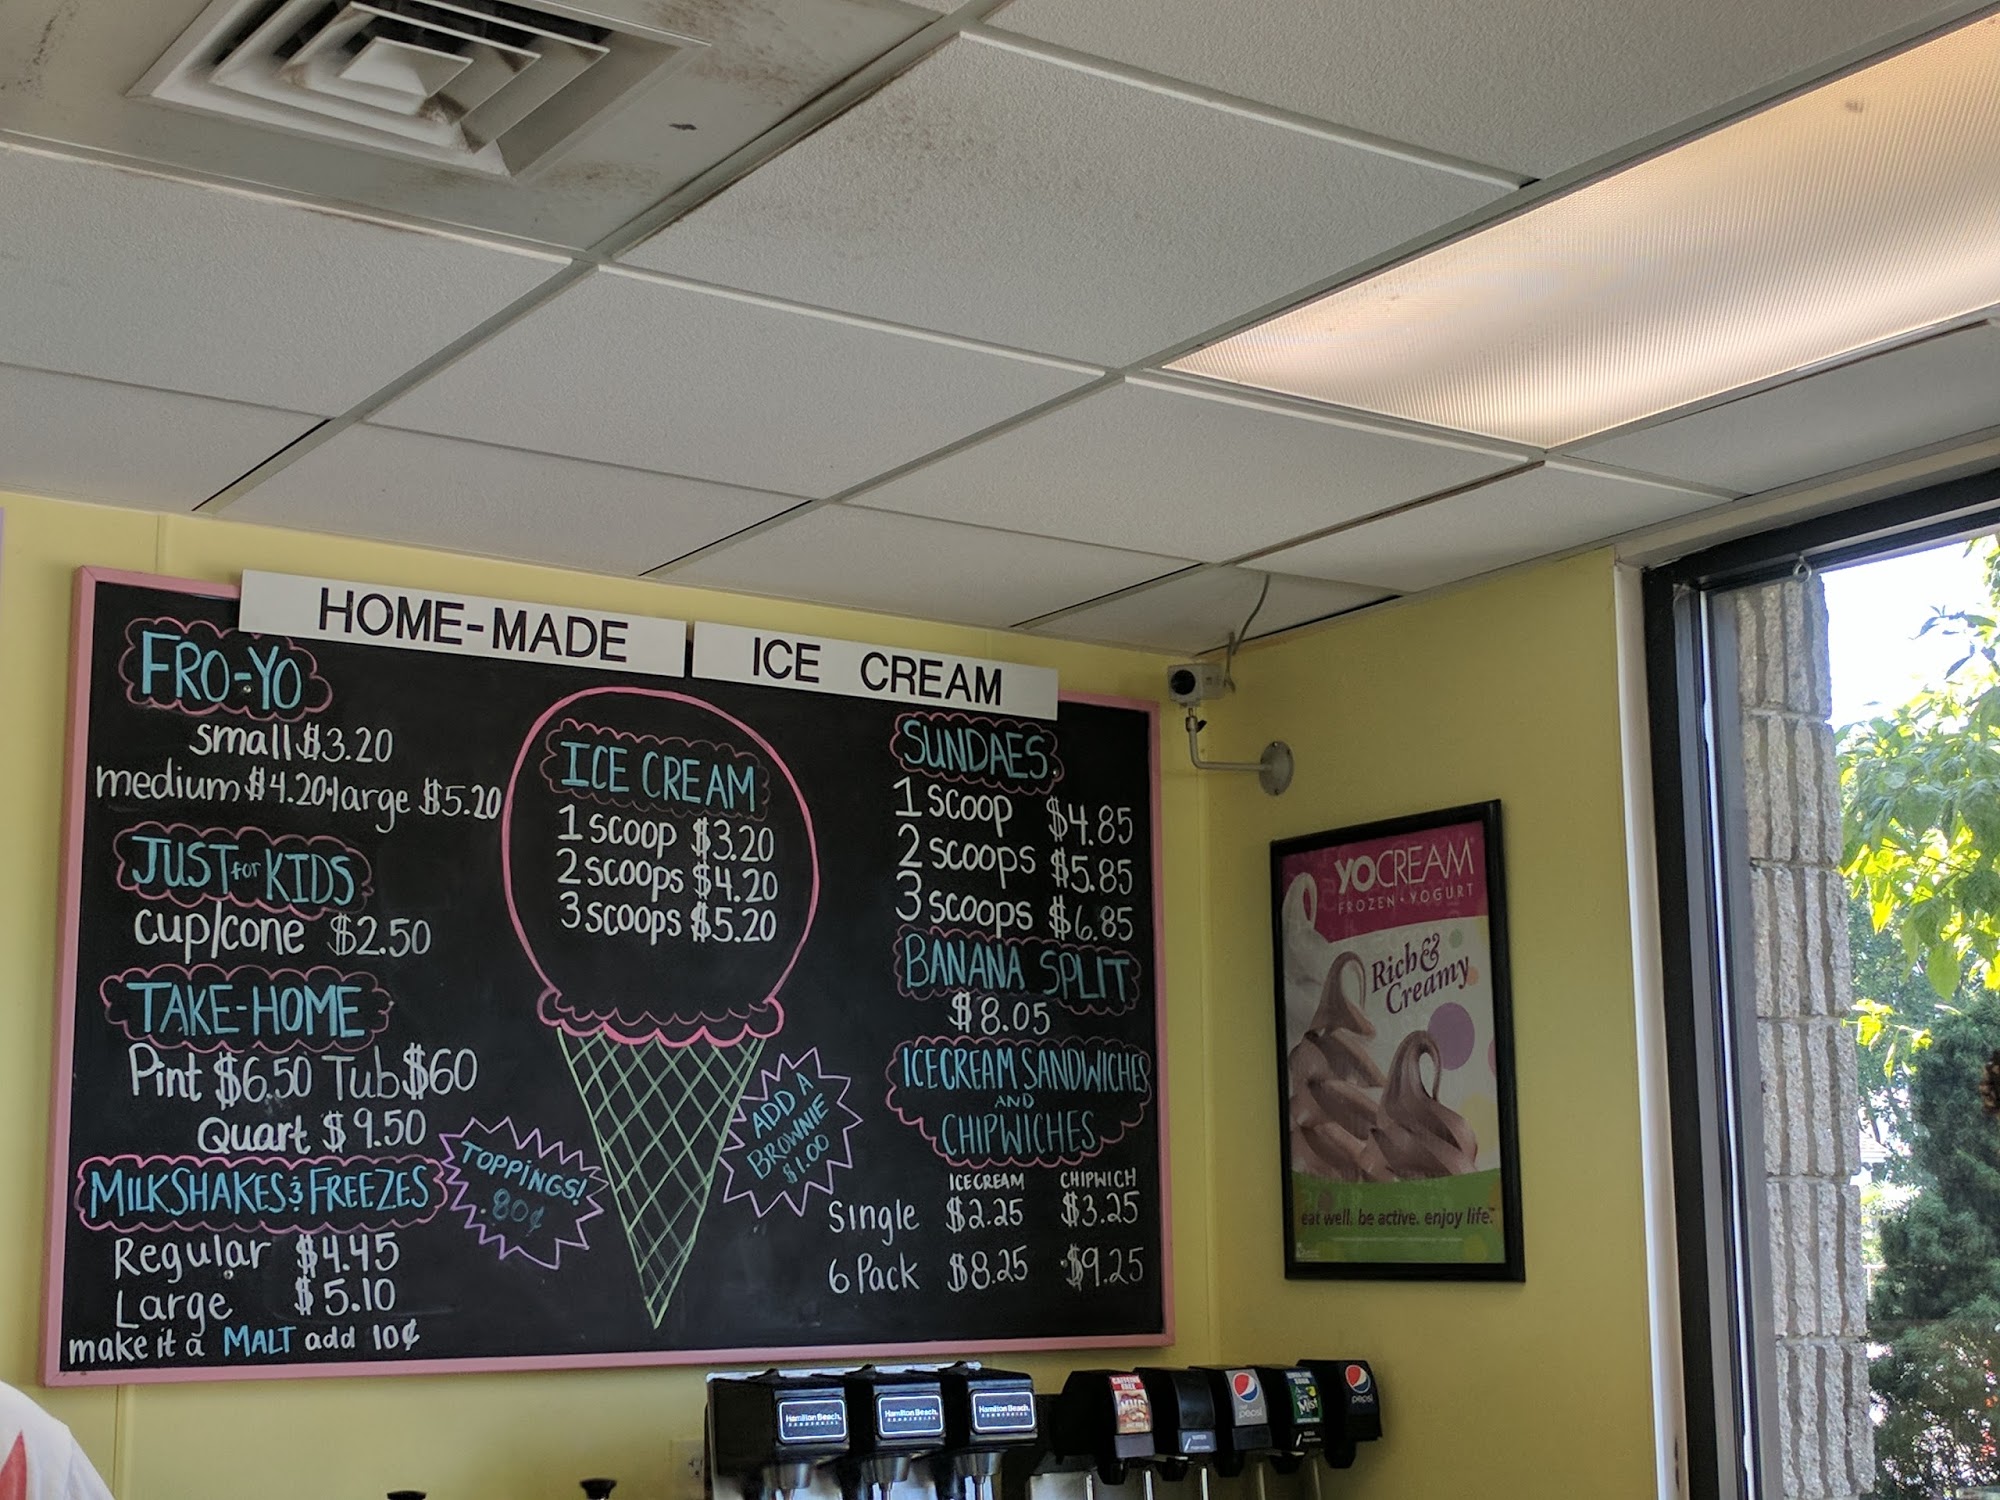 HOME-MADE ICE CREAM
FRO-YO
small $3.20
medium $4.20 • large $5.20
JUST for KIDS
cup/cone $2.50
TAKE-HOME
Pint $6.50 Tub $60
Quart $9.50
MILKSHAKES & FREEZES
Regular $4.45
Large $5.10
make it a MALT add 10¢
TOPPINGS!
.80¢
ICE CREAM
1 scoop $3.20
2 scoops $4.20
3 scoops $5.20
ADD A
BROWNIE
$1.00
SUNDAES
1 scoop $4.85
2 scoops $5.85
3 scoops $6.85
BANANA SPLIT
$8.05
ICE CREAM SANDWICHES
AND
CHIPWICHES
ICE CREAM CHIPWICH
Single $2.25 $3.25
6 Pack $8.25 $9.25
YOCREAM
FROZEN • YOGURT
Rich &
Creamy
eat well. be active. enjoy life.
Hamilton Beach
Hamilton Beach
Hamilton Beach
CAFFEINE
FREE
MUG
pepsi
Mist
pepsi